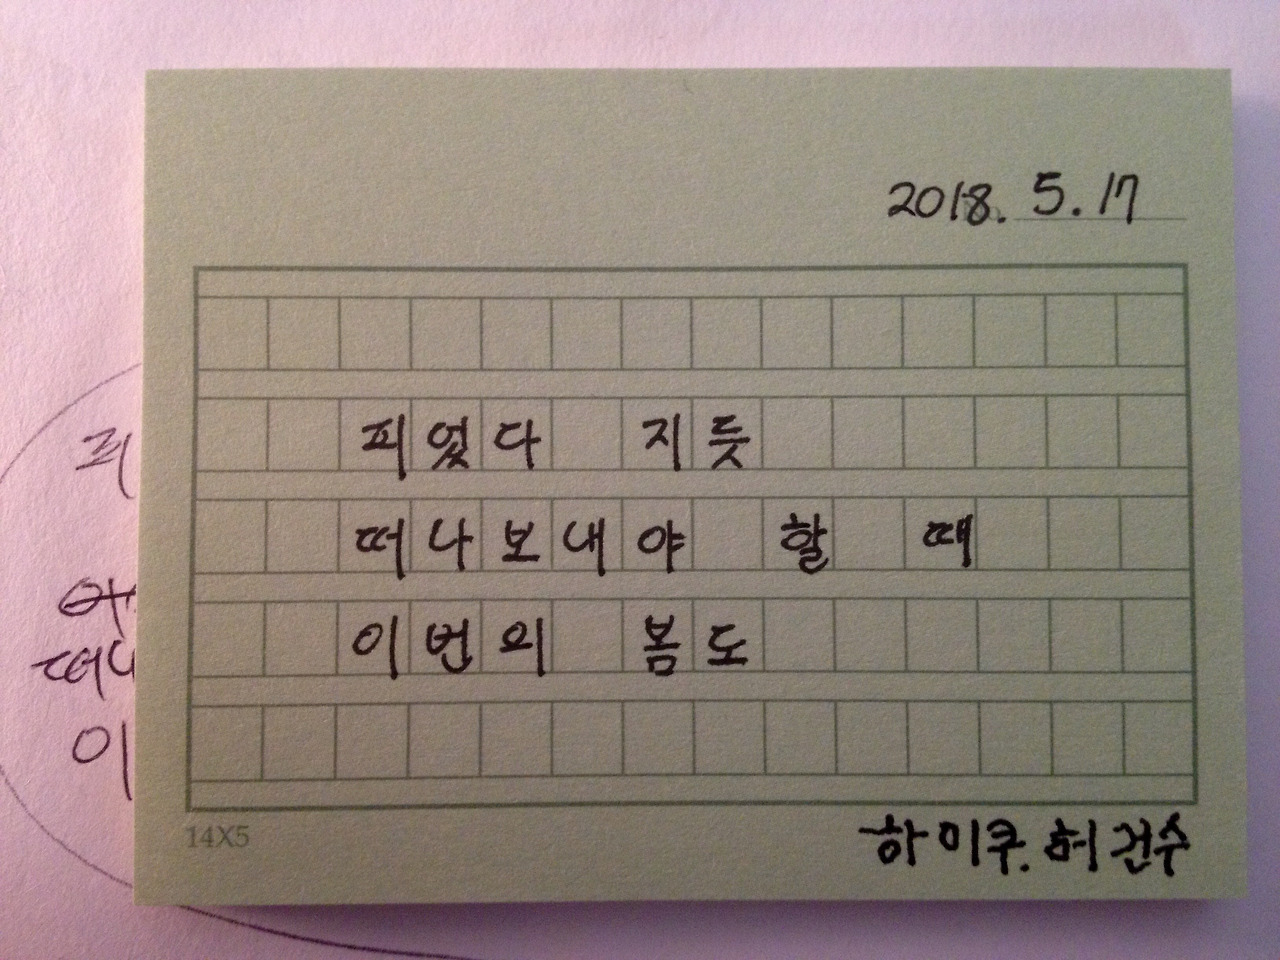 2018. 5. 17
피었다 지듯
떠나보내야 할 때
이번의 봄도
14X5
하이쿠. 허건수
피
떠나
이